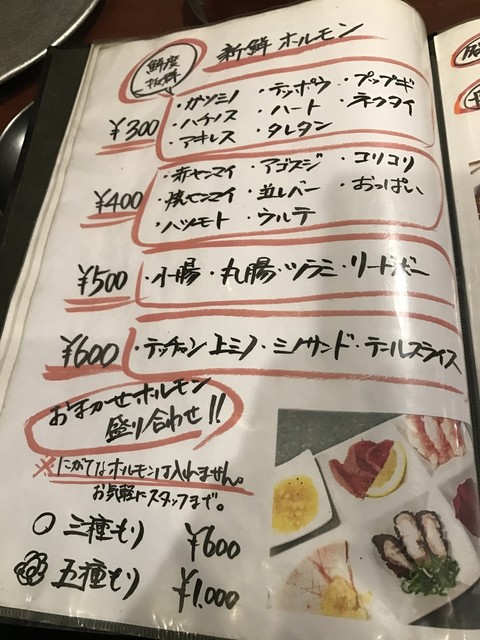 新鮮 ホルモン
鮮度
抜群
¥300
・ガツミノ ・テッポウ ・プップギ
・ハチノス ・ハート ・ネクタイ
・アキレス ・タレタン
¥400
・赤センマイ ・アゴスジ ・コリコリ
センマイ ・並レバー ・おっぱい
・ハツモト ・ウルテ
¥500
・小腸・丸腸・ツラミ・リードボー
¥600
・テッチャン 上ミノ・ミノサンド・テールスライス
おまかせホルモン
盛り合わせ!!
※にがてなホルモンは入れません。
お気軽にスタッフまで。
三種もり ¥600
五種もり ¥1,000